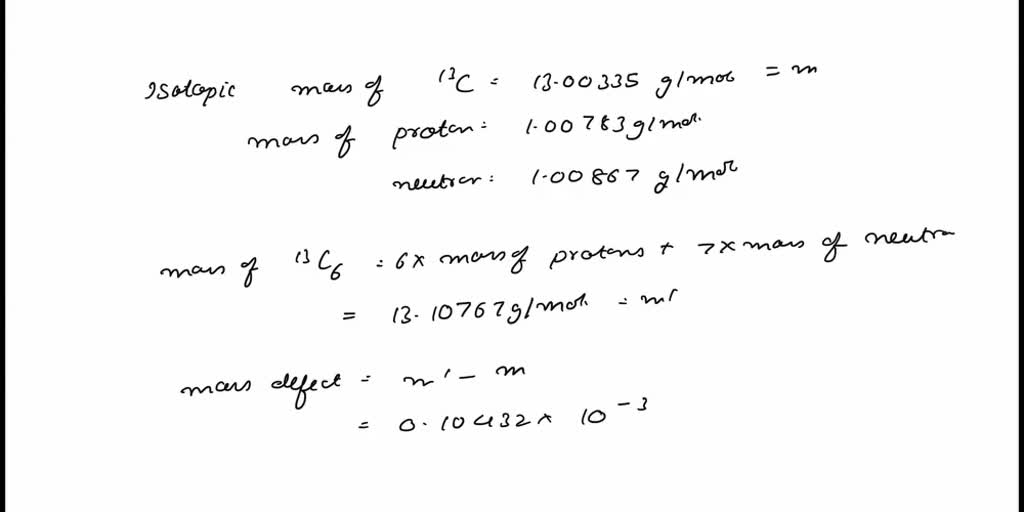 Isotopic mass of ¹³C = 13.00335 g/mol = m
mass of proton = 1.00783 g/mol.
neutron = 1.00867 g/mol
mass of ¹³C₆ = 6x mass of protons + 7x mass of neutra
= 13.10767 g/mol. = m'
mass defect = m' - m
= 0.10432 x 10⁻³